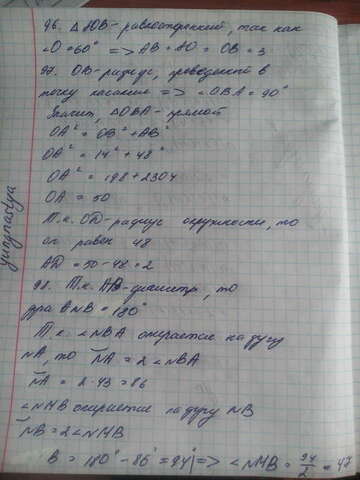 96. △AOB - равносторонний, так как
∠O = 60° => AB = AO = OB = 3
97. OB - радиус, проведенный в
точку касание => ∠OBA = 90°
Значит, △OBA - прямой
OA² = OB² + AB²
OA² = 14² + 48²
OA² = 198 + 2304
OA = 50
Т.к. OD - радиус окружности, то
он равен 48
AD = 50 - 48 = 2
98. Т.к. AB - диаметр, то
дуга ANB = 180°
Т.к. ∠NBA опирается на дугу
NA, то NA = 2∠NBA
NA = 2 · 43 = 86
∠NMB опирается на дугу NB
NB = 2∠NMB
B = 180° - 86° = 94° => ∠NMB = 94/2 = 47
yungnastya